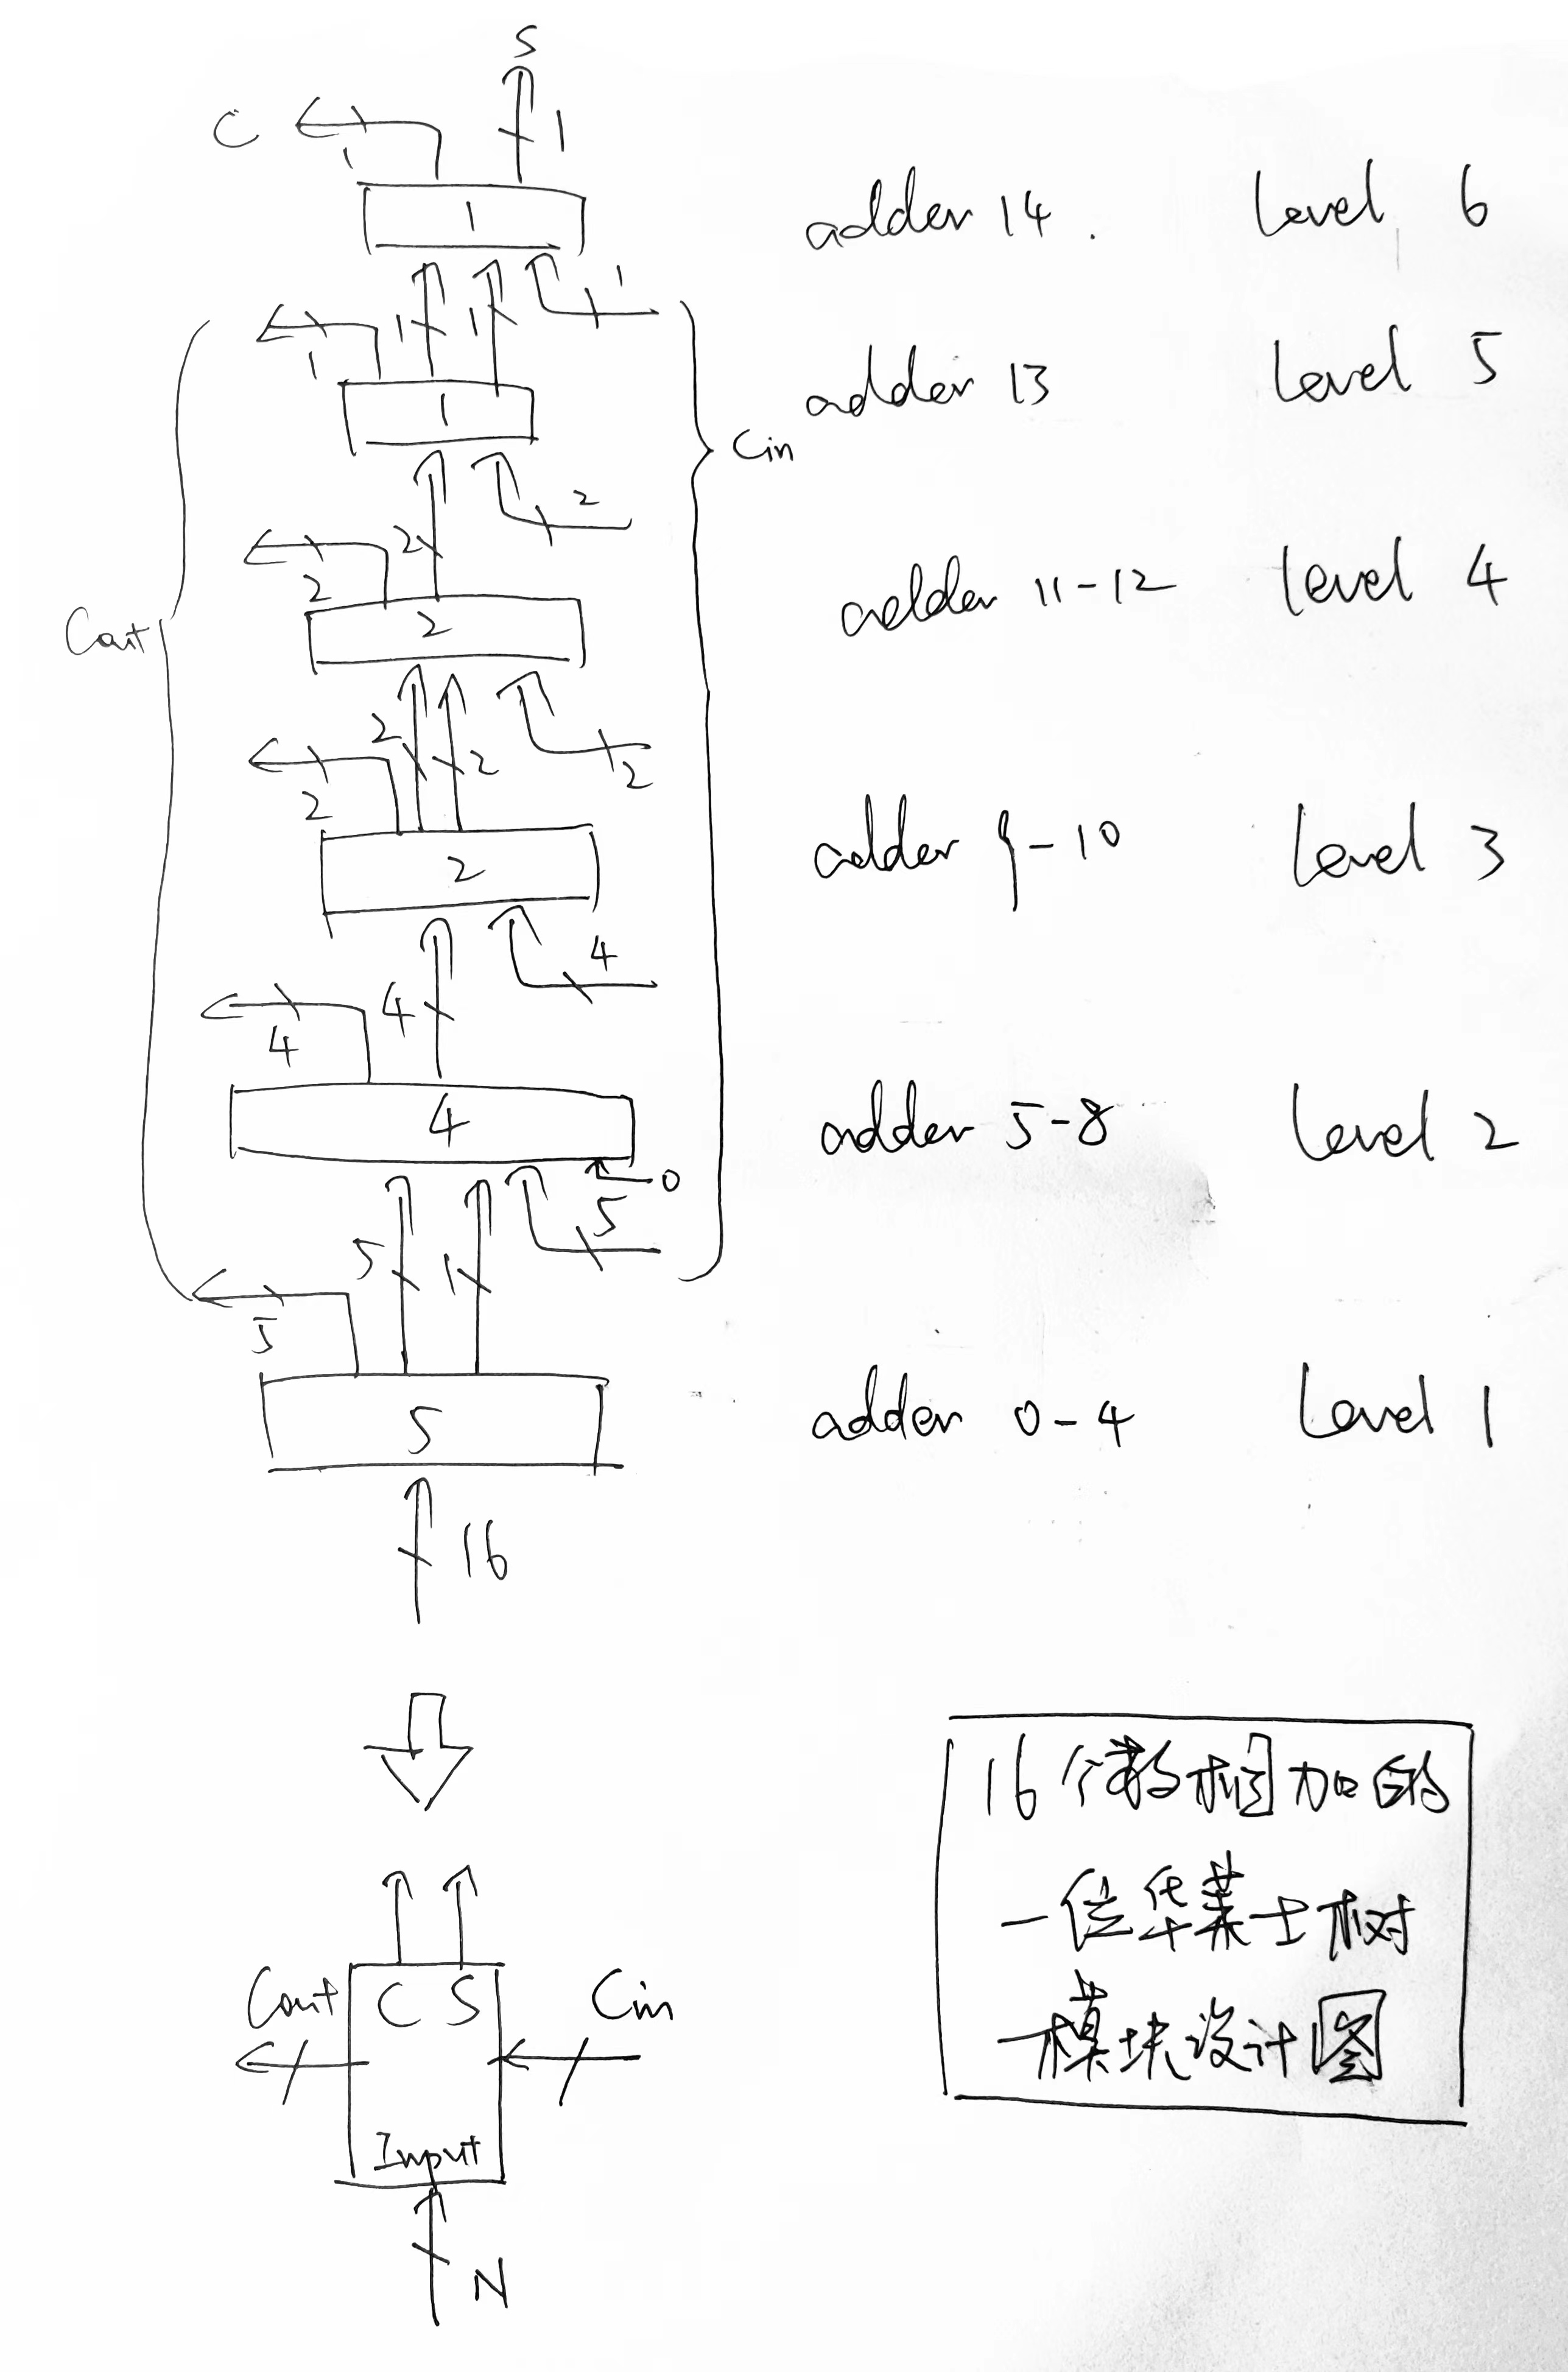 S
C
1
1
1
adder 14 .
Level 6
1
1
1
1
1
adder 13
Level 5
Cin
2
2
2
2
adder 11-12
Level 4
Cout
2
2
2
2
2
adder 9-10
Level 3
4
4
4
4
adder 5-8
Level 2
0
5
5
1
5
5
adder 0-4
Level 1
16
16个数相加的
一位华莱士树
模块设计图
Cout
C S
Cin
Input
N